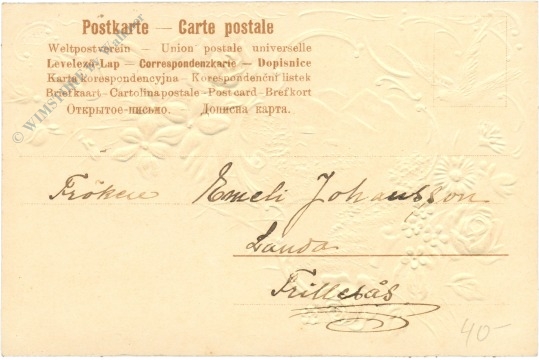 Postkarte — Carte postale
Weltpostverein — Union postale universelle
Levelező-Lap — Correspondenzkarte — Dopisnice
Karta korespondencyjna — Korespondenční listek
Briefkaart - Cartolina postale - Post card - Brefkort
Открытое письмо. Дописна карта.
Fröken Emeli Johansson
Landa
Frillesås
40-